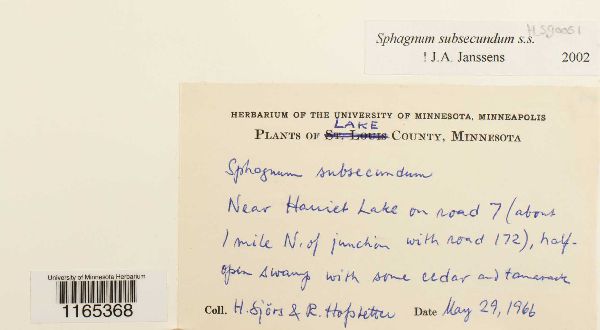 HS90051
Sphagnum subsecundum s.s.
! J.A. Janssens 2002
HERBARIUM OF THE UNIVERSITY OF MINNESOTA, MINNEAPOLIS
LAKE
PLANTS OF ST. LOUIS COUNTY, MINNESOTA
Sphagnum subsecundum
Near Harriet Lake on road 7 (about
1 mile N. of junction with road 172), half-
open swamp with some cedar and tamarack
Coll. H. Sjörs & R. Hofstetter Date May 29, 1966
University of Minnesota Herbarium
1165368